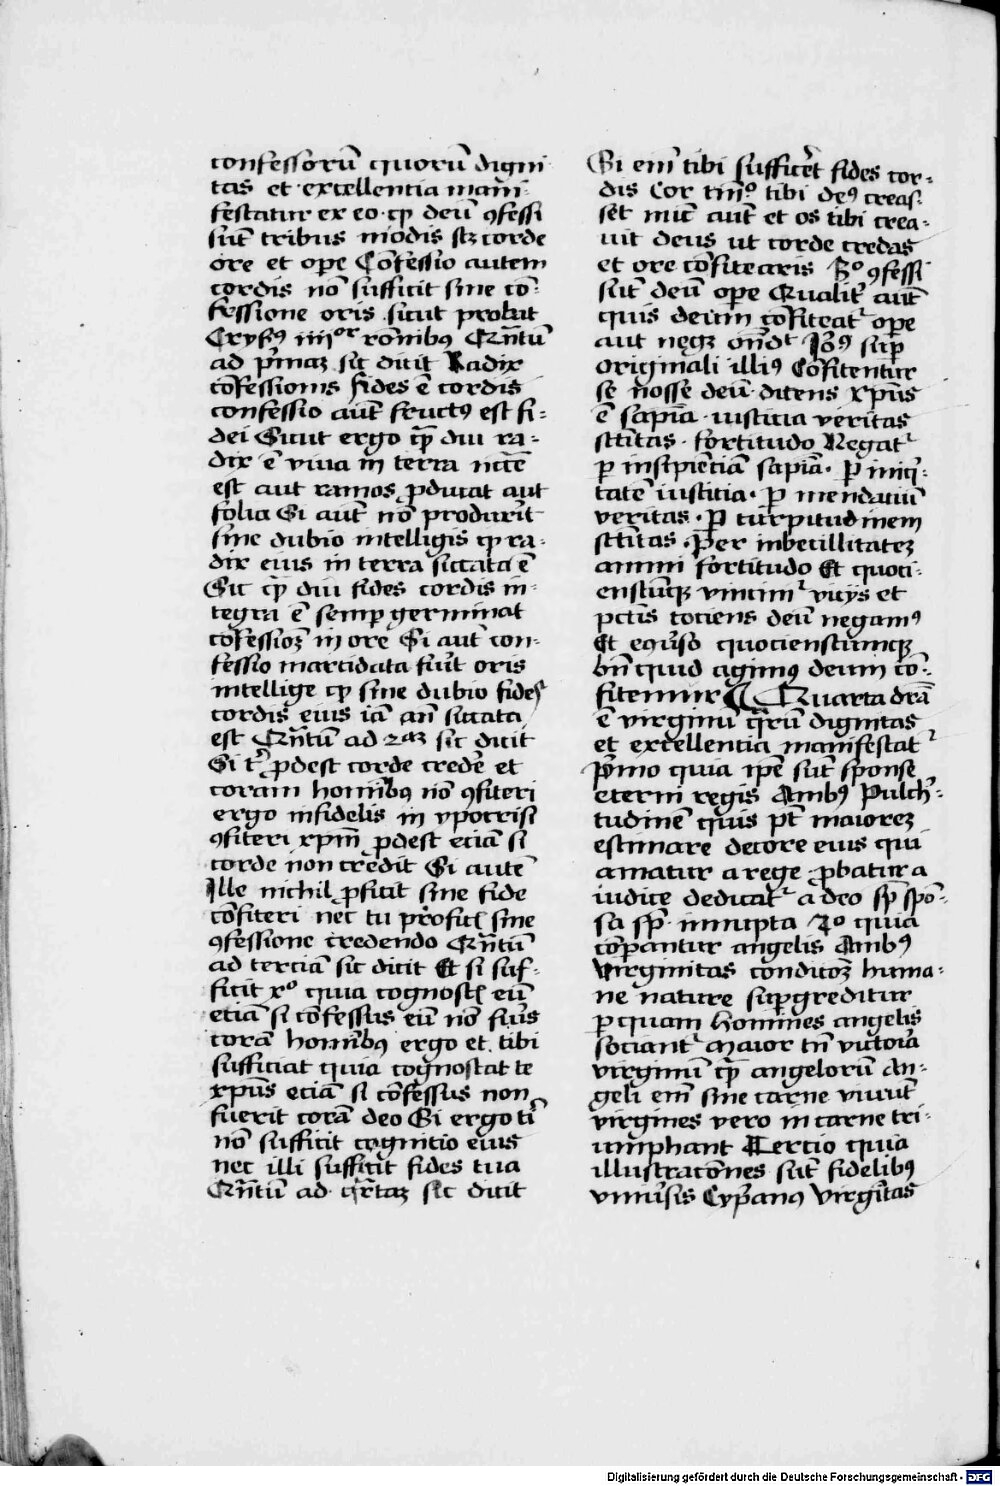 confessorū quorū digni
tas et excellentia mani
festatur ex eo ꝙ deū ꝯfessi
sūt tribus modis scꝫ corde
ore et oꝑe Cōfessio autem
cordis nō sufficit sine cō-
fessione oris sicut probat
Crysꝰ iiijor rōnibus Qn̄tum
ad p̄maꝫ sic dicit Radix
cōfessionis fides ē cordis
confessio aut̄ fructꝰ est fi-
dei Sicut ergo qm̄ diu ra-
dix ē viua in terra nc̄cē
est aut ramos ꝓducat aut
folia Si aut̄ nō produxit
sine dubio intelligis ꝙ ra-
dix eius in terra siccata ē
Sic qm̄ diu fides cordis in-
tegra ē semꝑ germinat
cōfessioꝫ in ore Si aut̄ con-
fessio marcidata fūit oris
intellige ꝙ sine dubio fides
cordis eius iā an̄ siccata
est Qn̄tū ad 2aꝫ sic dicit
Si t̄ ꝓdest corde credē et
coram homībꝰ nō ꝯfiteri
ergo infidelis in ypocrisi
ꝯfiteri xpm̄ ꝓdest eciā si
corde non credit Si autē
Ille nichil ꝓficit sine fide
cōfiteri nec tu proficis sine
ꝯfessione credendo Qn̄tū
ad terciā sic dicit Et si suf-
ficit xo quia cognoscis eū
etiā si cōfessus eū nō fūis
corā homībꝰ ergo et tibi
sufficiat quia cognoscat te
xpūs eciā si cōfessus non
fuerit corā deo Si ergo t̄
nō sufficit cognitio eius
nec illi sufficit fides tua
Qn̄tū ad qrtaꝫ sic dicit
Si eni᷎ tibi sufficēt fides cor-
dis Cor tm̄o tibi deꝰ creas-
set nūc aut̄ et os tibi crea-
uit deus ut corde credas
et ore cōfitearis 3o ꝯfessi
sūt deū oꝑe Qualit̄ aut̄
quis deum cōfiteat᷑ oꝑe
aut negꝫ on̄dt Jōꝰ suꝑ
originali illiꝰ Cōfitentur
se nosse deū dicens xpūs
ē sapīa iusticia veritas
sc̄titas fortitudo Negat᷑
ꝑ insipientiā sapīa. ꝑ iniq̄-
tatē iusticia. ꝑ mendatiū
veritas. ꝑ turpitudinem
sc̄titas. Per inbecillitateꝫ
animi fortitudo Et quoci-
enscūqꝫ vincim᷑ vicijs et
pctīs tociens deū negamꝰ
Et eqūso quocienscumqꝫ
bn̄ quid agimꝰ deum cō-
fitemur ¶ Quarta drā
ē virginū qrū dignitas
et excellentia manifestat᷑
Pm̄o quia ip̄e sūt sponse
eterni regis Ambꝰ Pulch᷑-
tudinē quis pt̄ maioreꝫ
estimare decore eius qui
amatur a rege ꝓbatur a
iudice dedicat᷑ a deo sp̄ spō-
sa sp̄ innupta 2o quia
cōꝑantur angelis Ambꝰ
Virginitas condicōꝫ huma-
ne nature suꝑgreditur
ꝑ quam homines angelis
sociant᷑ maior tn̄ victoīa
virginū qm̄ angelorū An-
geli eni᷎ sine carne viuūt
virgines vero in carne tri-
umphant Tercio quia
illustracōnes sūt fidelibꝰ
vniūsis Cyp̄anꝰ Virgītas
Digitalisierung gefördert durch die Deutsche Forschungsgemeinschaft - DFG